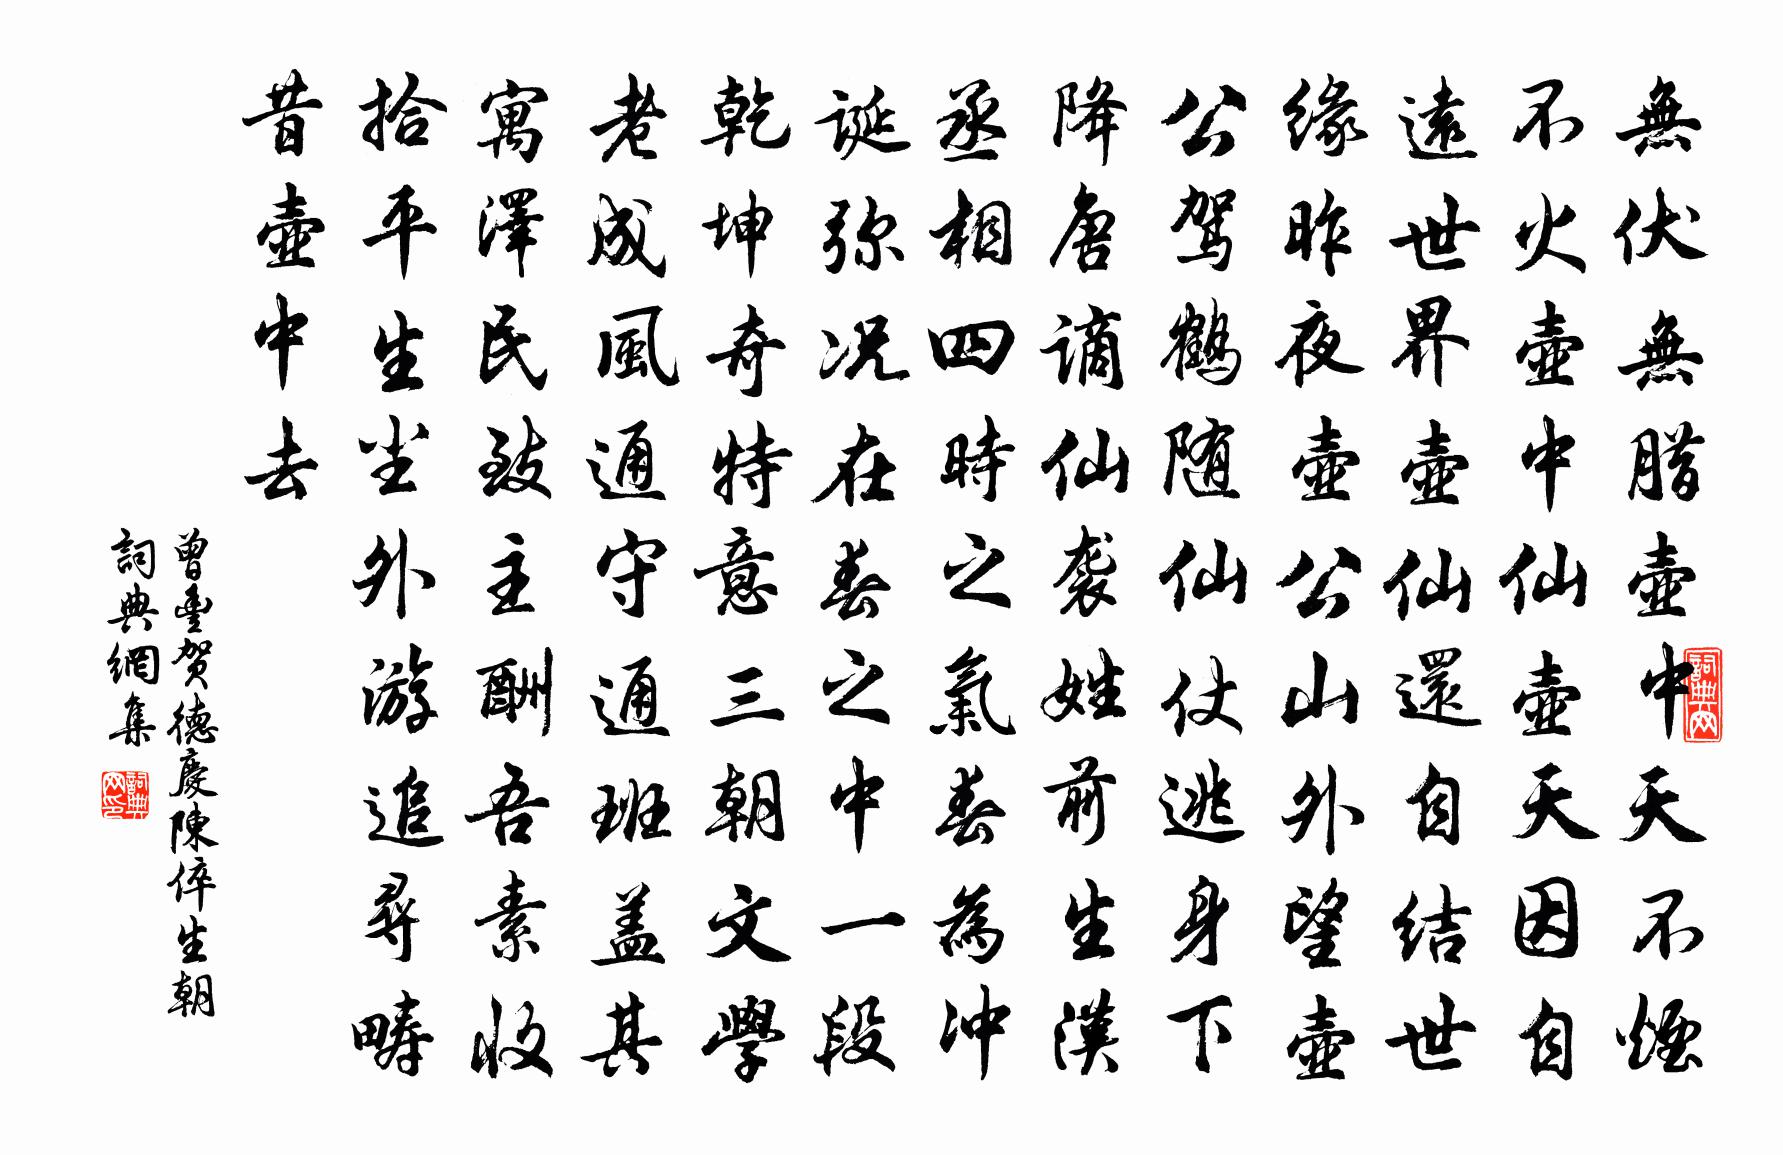 無伏無腊壺中天不煙
不火壺中仙壺天因自
遠世界壺仙還自結世
緣昨夜壺公山外望壺
公駕鶴随仙仗逃身下
降唐謫仙袭姓前生漢
丞相四時之氣春為冲
誕弥況在春之中一段
乾坤奇特意三朝文學
老成風通守通班盖其
寓澤民致主酬吾素收
拾平生坐外游追尋疇
昔壺中去
曾豐贺德慶陳倅生朝
詞典網集
詞典网
詞典网印